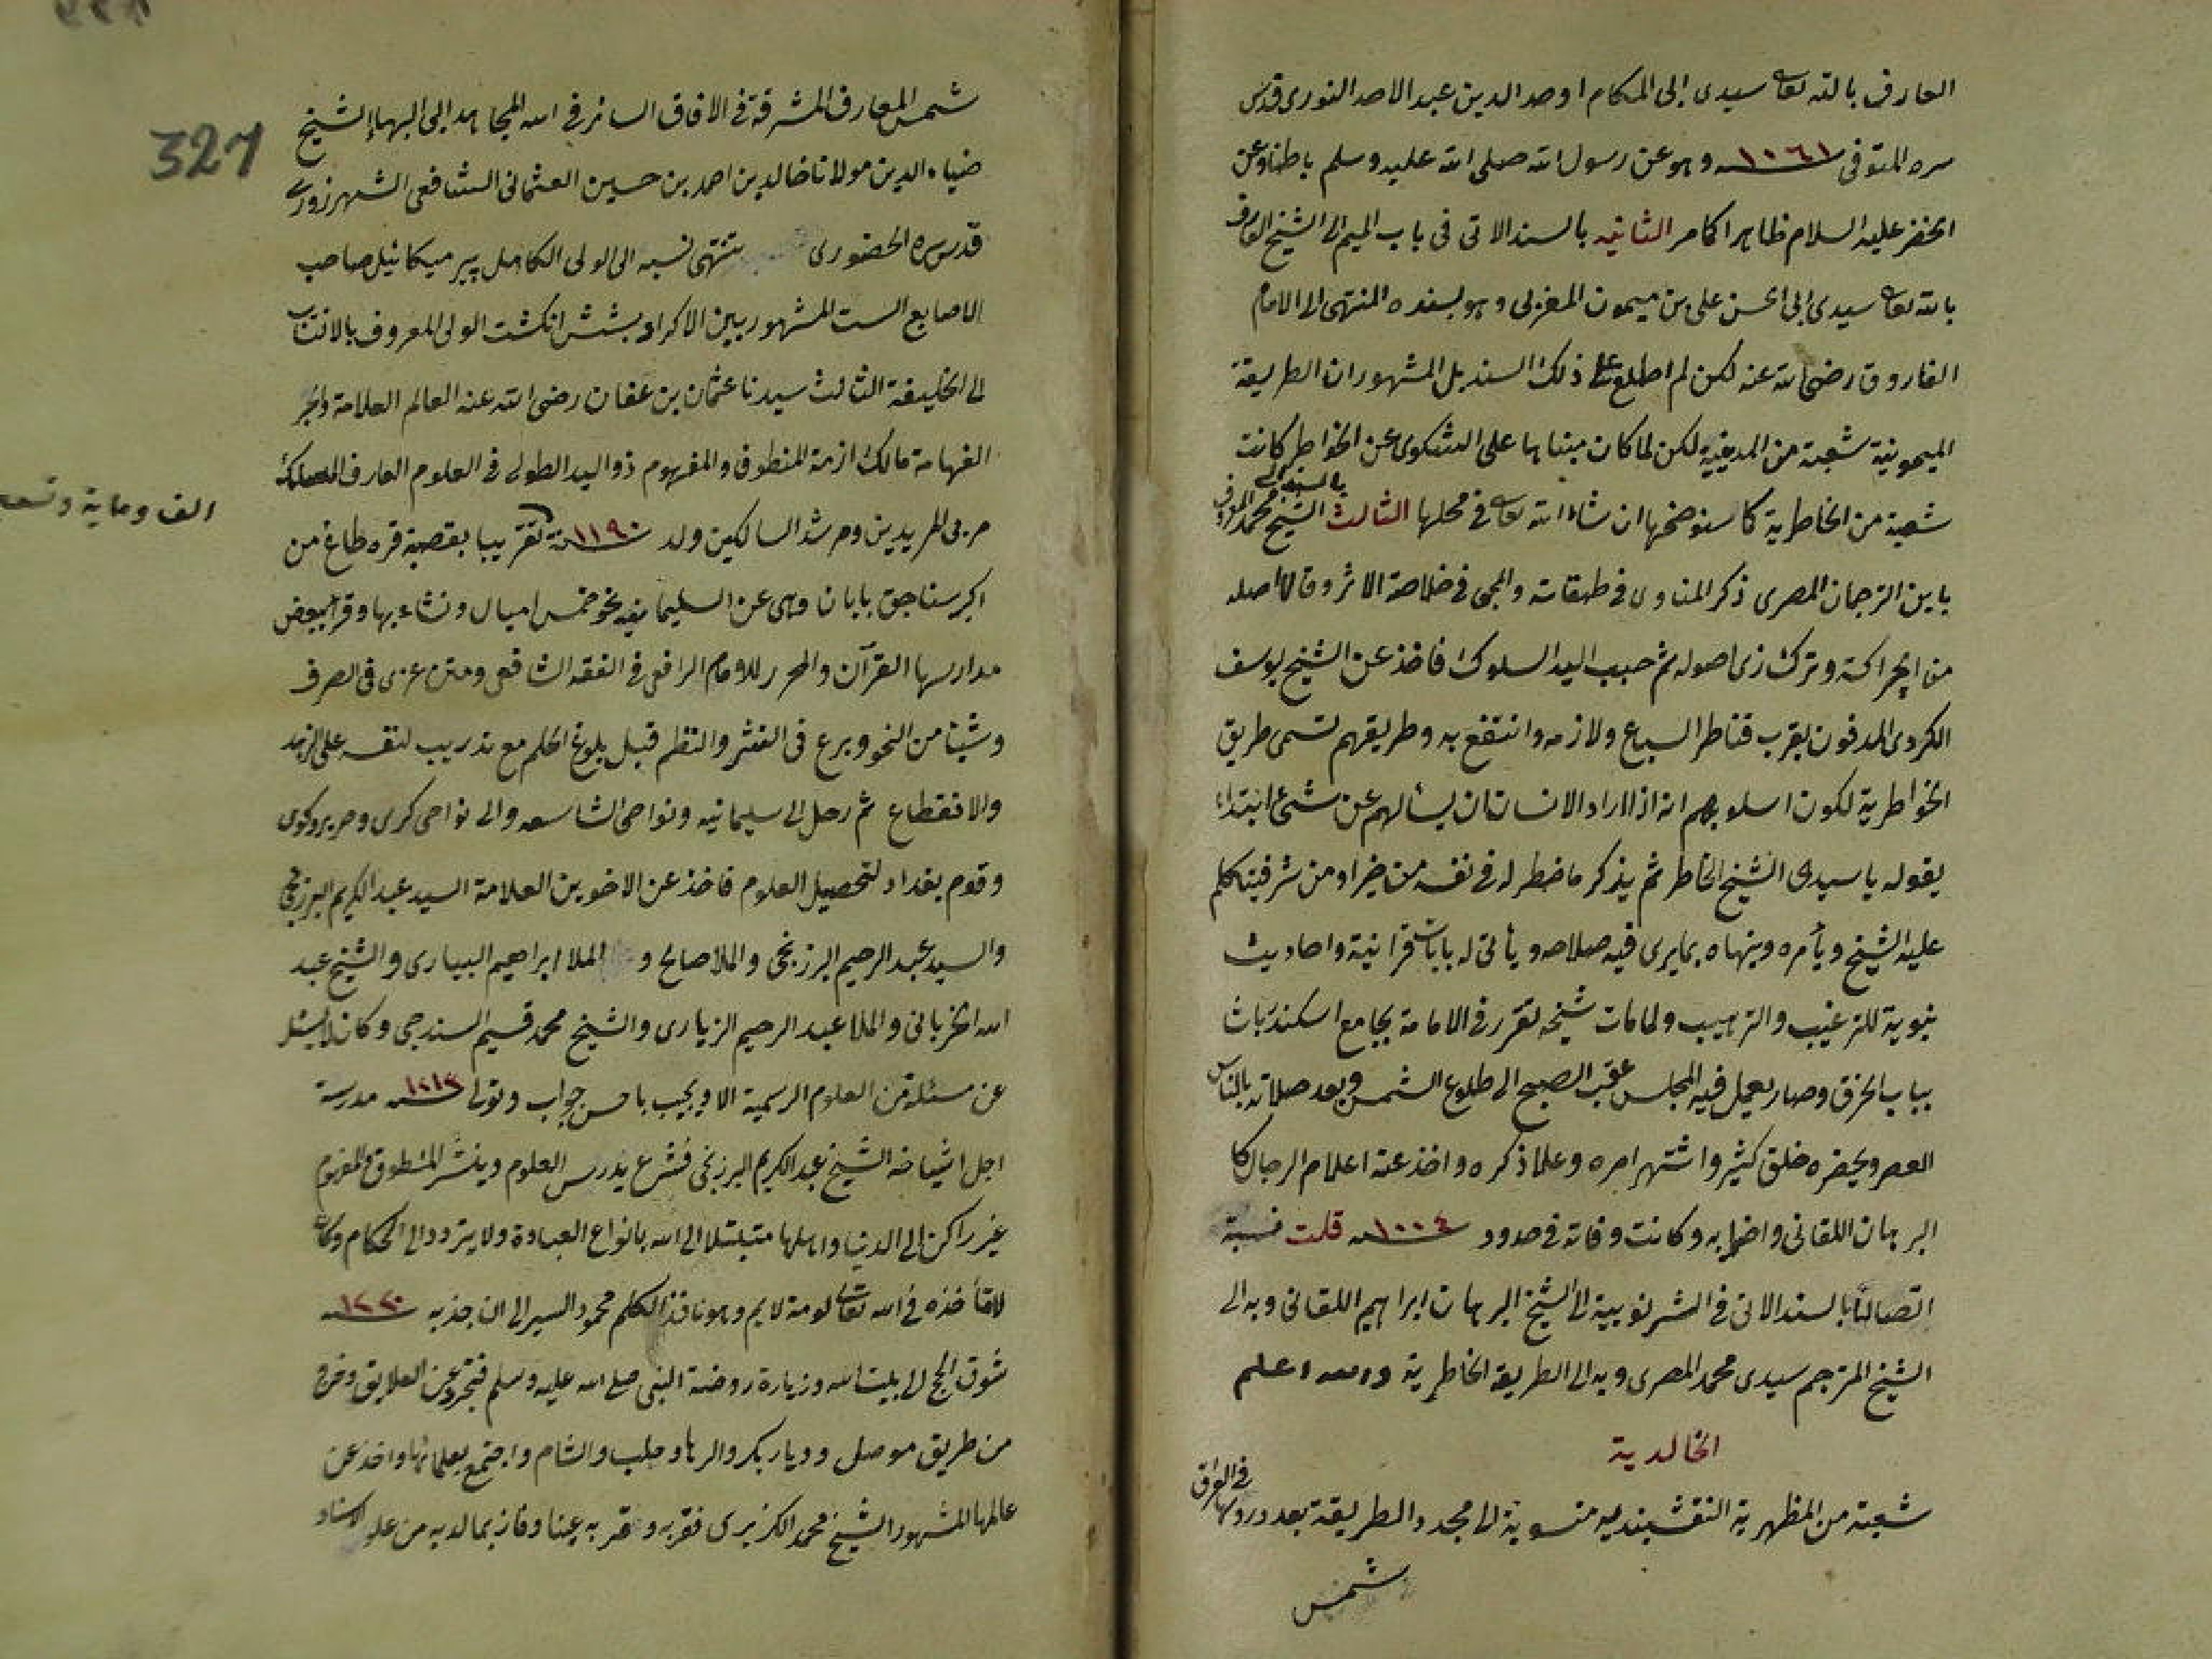 العارف بالله تعا سيدى ابى المكام اوحد الدين عبد الاحد النورى قدس
سره المتوفى سنة ١٠٦١ وهو عن رسول الله صلى الله عليه وسلم باطنا وعن
الخضر عليه السلام ظاهرا كامر الثانيه بالسند الاتى فى باب الميم الى الشيخ العارف
بالله تعا سيدى ابى الحسن على بن ميمون المغربى وهو بسنده المنتهى الى الامام
الفاروق رضى الله عنه لكن لم اطلع على ذلك السند بل المشهور ان الطريقة
الميمونية شعبة من المدينية لكن لما كان مبناها على الشكوى عن الخواطر كانت
شعبة من الخاطرية كما سنوضحها ان شاء الله تعا فى محلها الثالث بالسند الى الشيخ محمد المعروف
باين الترجمان المصرى ذكر المناوى فى طبقاته والمحبى فى خلاصة الاثر وقالا اصله
من الجراكة وترك زى اصوله ثم حبب اليه السلوك فاخذ عن الشيخ يوسف
الكردى المدفون بقرب قناطر السباع ولازمه وانتفع به وطريقهم تسمى طريق
الخواطرية لكون اسلوبهم انه اذا اراد الانسان ان يسألهم عن شئ ابتداء
يقوله يا سيدى الشيخ الخاطر ثم يذكر ما خطر له فى نفسه من خير او من شر فيتكلم
عليه الشيخ ويأمره وينهاه بما يرى فيه صلاحه ويأتى له بايات قرانية واحاديث
نبوية للترغيب والترهيب ولما مات شيخه تقرر فى الامامة بجامع اسكندر باشا
بباب الخرق وصار يعمل فيه المجلس عقب الصبح الى طلوع الشمس وبعد صلاته بالناس
العصر ويحضره خلق كثير واشتهر امره وعلا ذكره واخذ عنه اعلام الرجال كا
البرهان اللقانى واضرابه وكانت وفاته فى حدود سنة ١٠٠٤ قلت نسبة
اتصالنا بالسند الاتى فى الشرنوبية الى الشيخ البرهان ابراهيم اللقانى وبه الى
الشيخ المترجم سيدى محمد المصرى وبه الى الطريقة الخاطرية والله اعلم
الخالدية
شعبة من المظهرية النقشبنديه منسوبة الى مجدد الطريقة بعد دروسها فى العراق
شمس
327
شمس المعارف المشرقة فى الافاق السائر فى الله المجاهد ابى البهاء الشيخ
ضياء الدين مولانا خالد بن احمد بن حسين العثمانى الشافعى الشهرزورى
قدس سره الحضورى تنتهى نسبه الى الولى الكامل پير ميكائيل صاحب
الاصابع الست المشهور بين الاكراد بشش انكشت الولى المعروف بالانتساب
الى الخليفة الثالث سيدنا عثمان بن عفان رضى الله عنه العالم العلامة والبحر
الفهامة مالك ازمة المنطوق والمفهوم ذو اليد الطولى فى العلوم العارف المسلك
مربى المريدين ومرشد السالكين ولد سنة ١١٩٠ تقريبا بقصبة قره طاغ من
الف وماية وتسعين
اكبر سناجق بابان وهى عن السليمانيه نحو خمس اميال ونشاء بها وقرا ببعض
مدارسها القرآن والمحرر للامام الرافعى فى الفقه الشافعى ومتن عزى فى الصرف
وشيئا من النحو وبرع فى النثر والنظم قبل بلوغ الحلم مع تدريب لنفسه على الزهد
والانقطاع ثم رحل الى سليمانيه ونواحى الشاسعه والى نواحى كرى وحرير وكوى
وقدم بغداد لتحصيل العلوم فاخذ عن الاخوين العلامة السيد عبد الكريم البرزنجى
والسيد عبد الرحيم البرزنجى والملا صالح و الملا ابراهيم البيارى والشيخ عبد
الله الخربانى والملا عبد الرحيم الزيارى والشيخ محمد قسيم السندجى وكان لا يسئل
عن مسئلة من العلوم الرسمية الا ويجيب باحسن جواب وتولى سنة ١٢١٣ مدرسة
اجل اشياخه الشيخ عبد الكريم البرزنجى فشرع يدرس العلوم وينشر المنطوق والمفهوم
غير راكن الى الدنيا واهلها متبتلا الى الله بانواع العبادة ولا يتردد الى الحكام وكان
لا تأخذه فى الله تعالى لومة لايم وهو نافذ الكلم محمود السير الى ان جذبه سنة ١٢٢٠
شوق الحج الى بيت الله وزيارة روضة النبى صلى الله عليه وسلم فتجرد عن العلايق وخرج
من طريق موصل وديار بكر والرها وحلب والشام واجتمع بعلمائها واخذ عن
عالمها المشهور الشيخ محمد الكزبرى فقر به وقر به عينا وفاز بما لديه من علو الاسناد